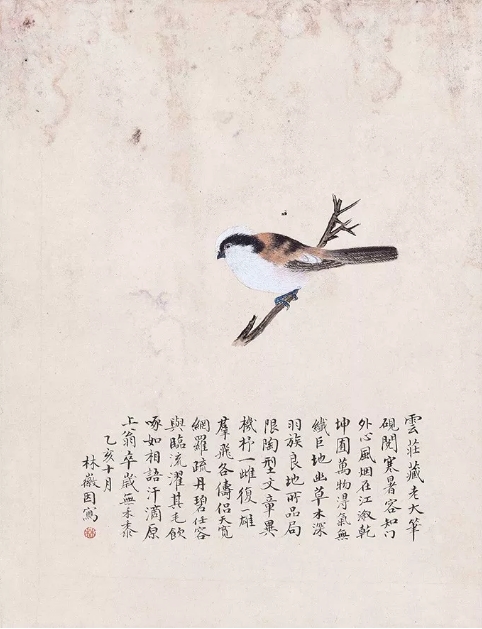 雲莊藏老大筆
硯閱寒暑容知門
外心風烟在江溆乾
坤圓萬物得氣無
纖巨地幽草木深
羽族良地所品局
限陶型文章異
機杼一雌復一雄
羣飛各儔侶天寬
網羅疏丹碧任容
與臨流濯其毛飲
啄如相語汗滴原
上翁卒歲無禾黍
乙亥十月
林徽因寫